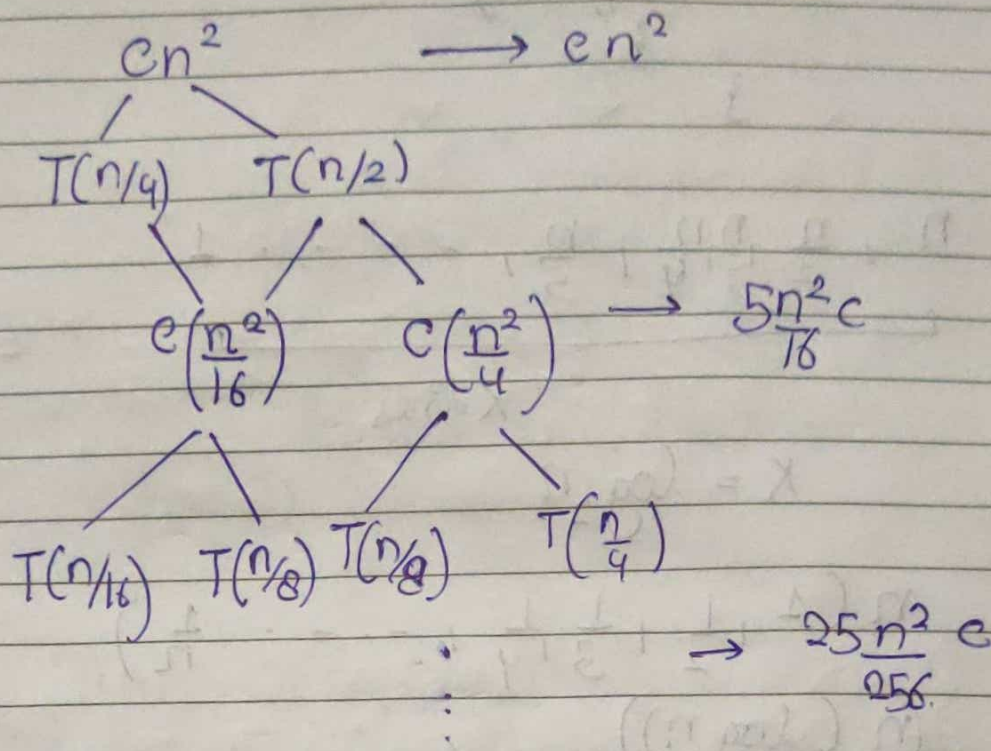 Cn² → Cn²
T(n/4) T(n/2)
C(n²/16) C(n²/4) → 5n²/16 C
T(n/16) T(n/8) T(n/8) T(n/4)
⋮ → 25n²/256 C